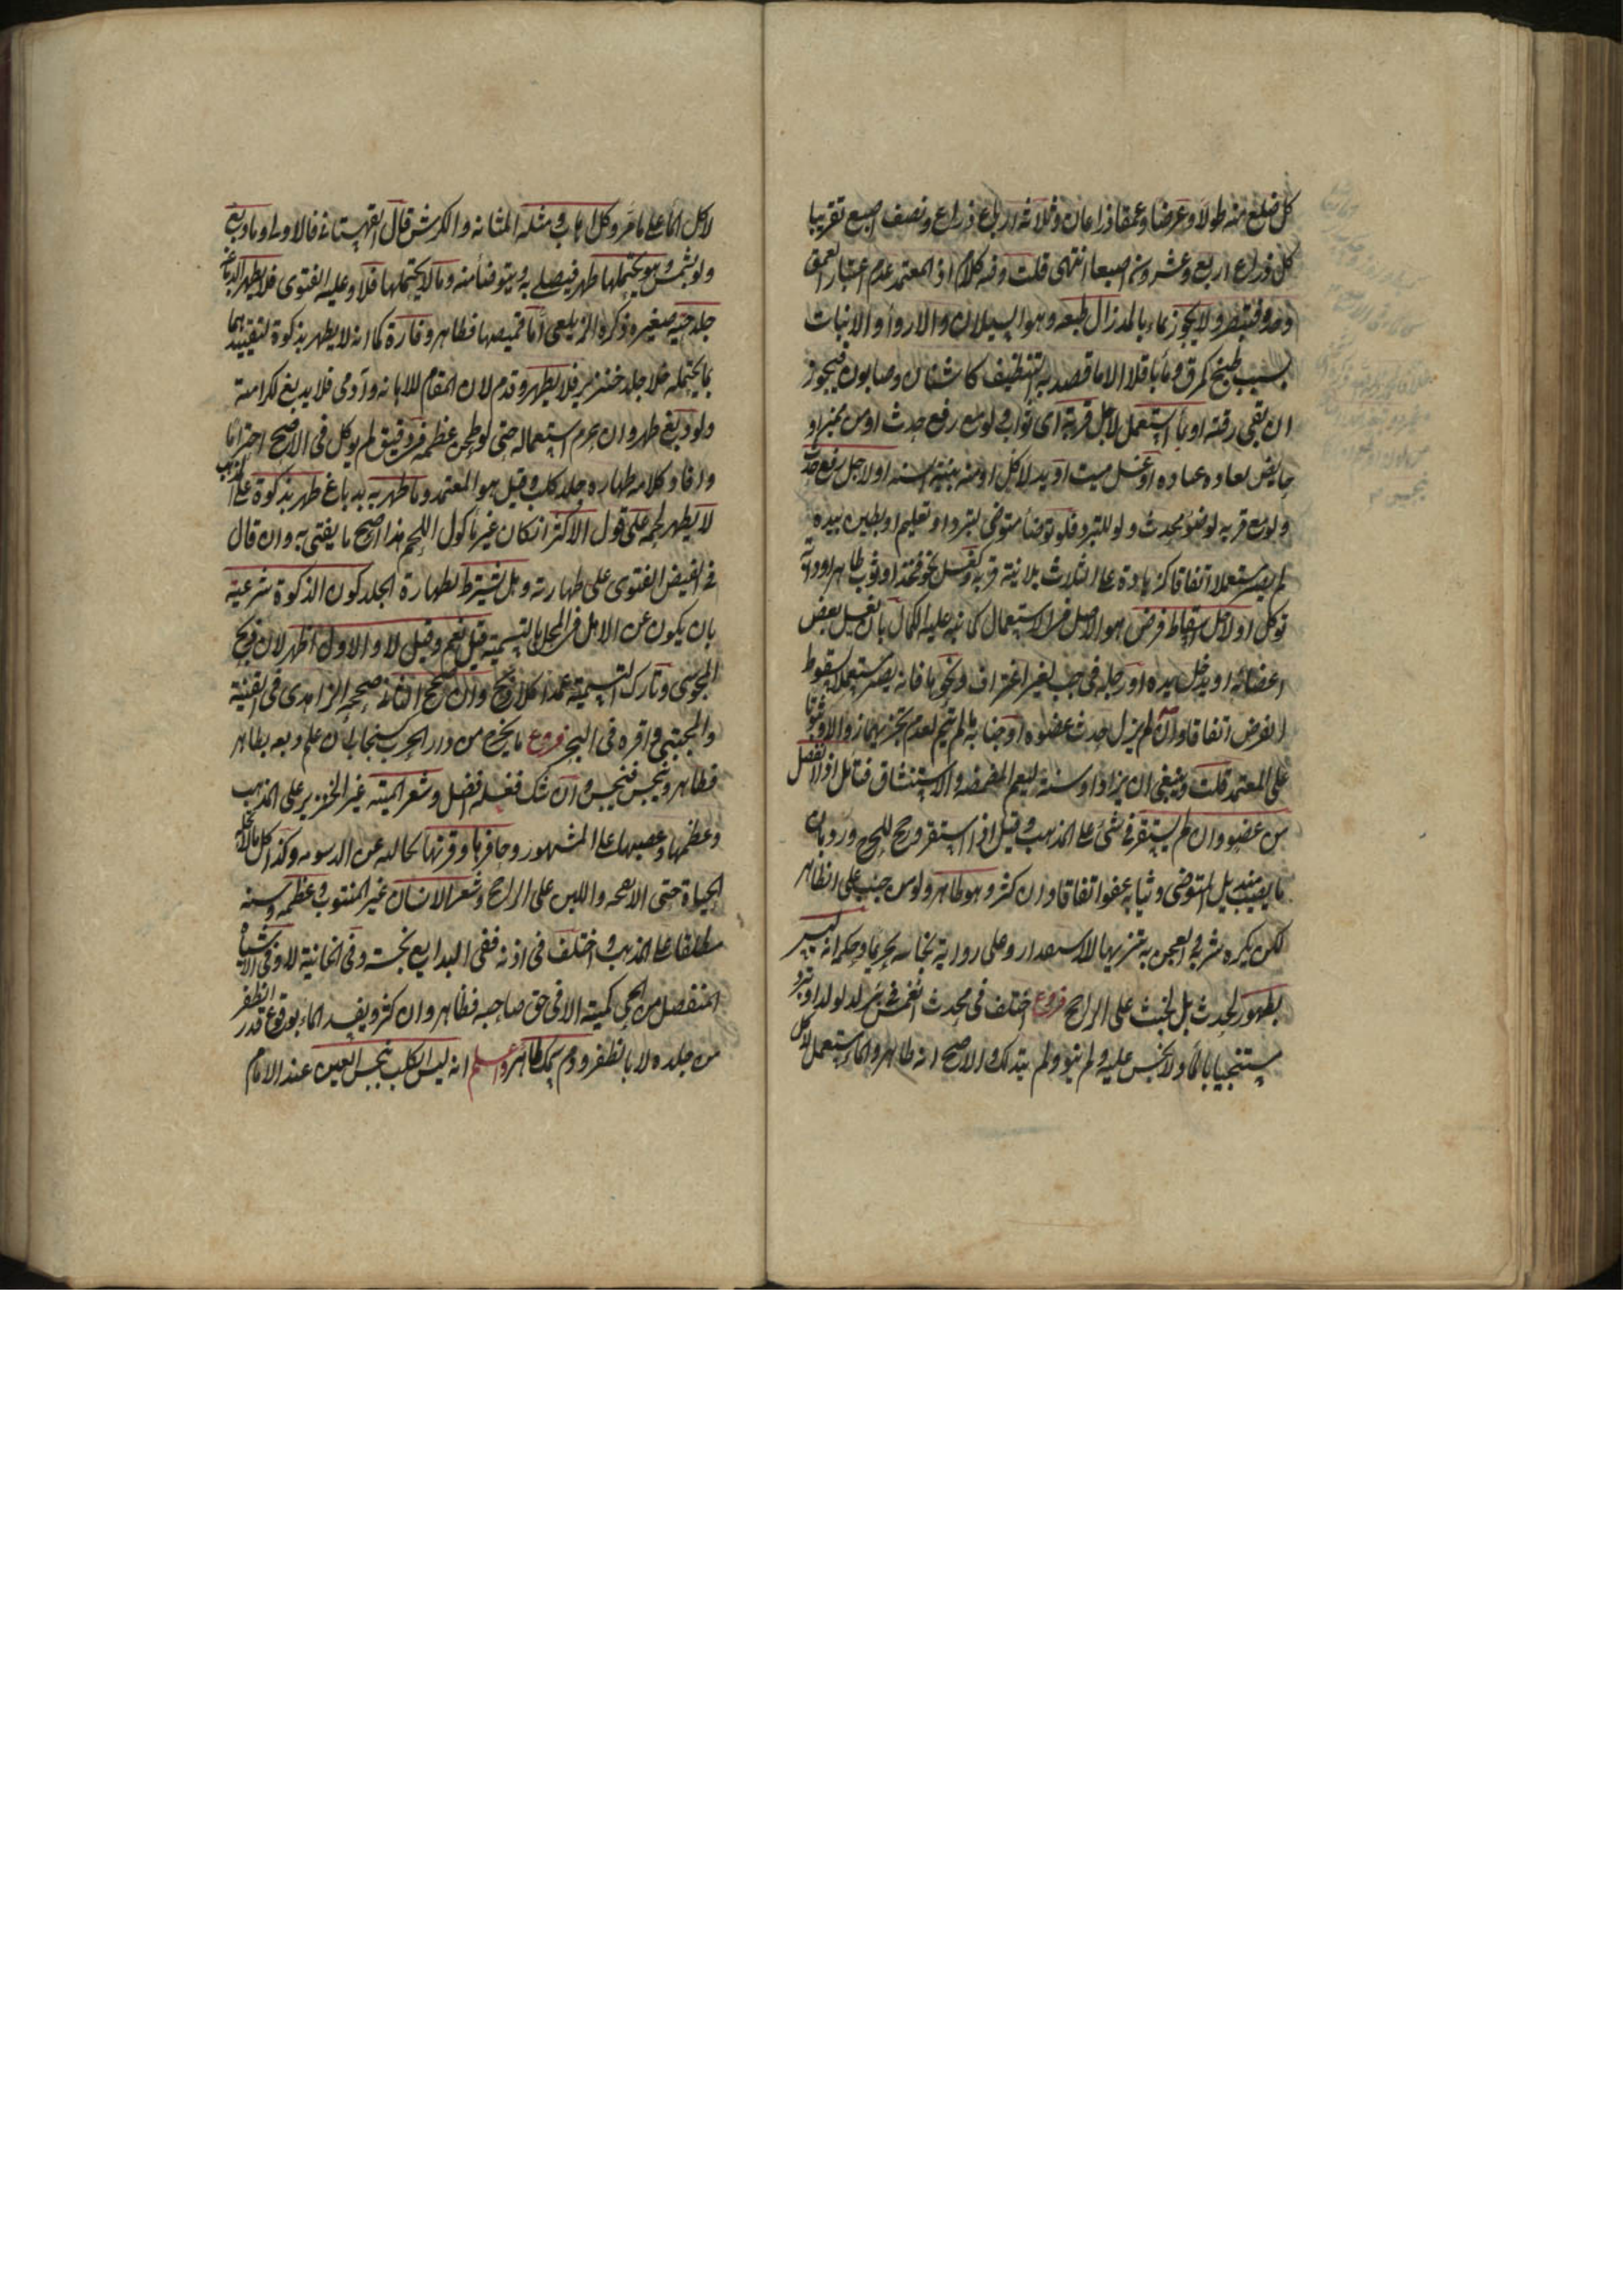 كل ضلع منه طولا وعرضا وعمقا ذراعان وثلاثة ارباع ذراع ونصف اصبع تقريبا
كل ذراع اربع وعشرون اصبعا انتهى قلت وفيه كلام اذ المعتمد عدم اعتبار العمق
وحده فتبصر ولا يجوز بماء بالمد زال طبعه وهو السيلان والارواء والانبات
بسبب طبخ كمرق وماء باقلا الا بما قصد به التنظيف كاشنان وصابون فيجوز
ان بقي رقته او بماء استعمل لاجل قربة اى ثواب ولو مع رفع حدث او من مميز او
حايض لعادة عبادة او غسل ميت او يد لاكل او منه بنية السنة او لاجل رفع حدث
ولو مع قربة لوضوء محدث ولو للتبرد فلو توضأ متوضئ لتبرد او تعليم او بطين بيده
لم يصر مستعملا اتفاقا كزيادة على الثلاث بلا نية قربة وكغسل نحو فخذ او ثوب طاهر او دابة
توكل او لاجل اسقاط فرض هو الاصل فى الاستعمال كما نبه عليه الكمال بان يغسل بعض
اعضائه او يدخل يده او رجله فى جب لغير اغتراف ونحوها فانه يصير مستعملا لسقوط
الفرض اتفاقا وان لم يزل حدث عضوه او جنابته ما لم يتم لعدم تجزيهما زوالا وثبوتا
على المعتمد قلت وينبغى ان يزاد او سنة ليعم المضمضة والاستنشاق فتأمل اذا انفصل
من عضو وان لم يستقر فى شئ على المذهب وقيل اذا استقر ورجح للحرج ورد بان
ما يصيب منديل المتوضى وثيابه عفو اتفاقا وان كثر وهو طاهر ولو من جنب على الظاهر
لكن يكره شربه والعجن به تنزيها للاستقذار وعلى رواية نجاسته تحريما وحكمه انه ليس
بطهور لحدث بل لخبث على الراجح فروع اختلف فى محدث انغمس فى بئر لدلو او تبرد
مستنجيا بالماء ولا نجس عليه ولم ينو ولم يتدلك والاصح انه طاهر والماء مستعمل
لا كل الماء على ما مر وكل اهاب ومثله المثانة والكرش قال القهستانى فالاولى وما دبغ
ولو بشمس وهو يحتملها طهر فيصلى به ويتوضأ منه وما لا يحتملها فلا وعليه الفتوى فلا يطهر بالدباغة
جلد حية صغيرة ذكره الزيلعى اما قميصها فطاهر وفارة كما انه لا يطهر بذكوة لتقييدهما
بما يحتمله خلا جلد خنزير فلا يطهر وقدم لان المقام للاهانة وآدمى فلا يدبغ لكرامته
ولو دبغ طهر وان حرم استعماله حتى لو طحن عظمه فى دقيق لم يوكل فى الاصح احتراما
وافاد كلامه طهارة جلد كلب وفيل وهو المعتمد وما طهر به بدباغ طهر بذكوة على المذهب
لا يطهر لحمه على قول الاكثر ان كان غير ماكول اللحم هذا اصح ما يفتى به وان قال
فى الفيض الفتوى على طهارته وهل يشترط لطهارة الجلد كون الذكوة شرعية
بان يكون من الاهل فى المحل بالتسمية قيل نعم وقيل لا والاول اظهر لان ذبح
المجوسى وتارك التسمية عمدا كلا ذبح وان صحح الثانى صححه الزاهدى فى القنية
والمجتبى واقره فى البحر فروع ما يخرج من دار الحرب كسنجاب ان علم دبغه بطاهر
فطاهر وبنجس فنجس وان شك فغسله افضل وشعر الميتة غير الخنزير على المذهب
وعظمها وعصبها على المشهور وحافرها وقرنها الخالية عن الدسومة وكذا كل ما لا تحله
الحياة حتى الانفحة واللبن على الراجح وشعر الانسان غير المنتوف وعظمه وسنه
مطلقا على المذهب واختلف فى اذنه ففى البدايع نجسة وفى الخانية لا وفى الاشباه
المنفصل من الحى كميتته الا فى حق صاحبه فطاهر وان كثر ويفسد الماء بوقوع قدر الظفر
من جلده لا بالظفر ودم سمك طاهر واعلم انه ليس الكلب نجس العين عند الامام